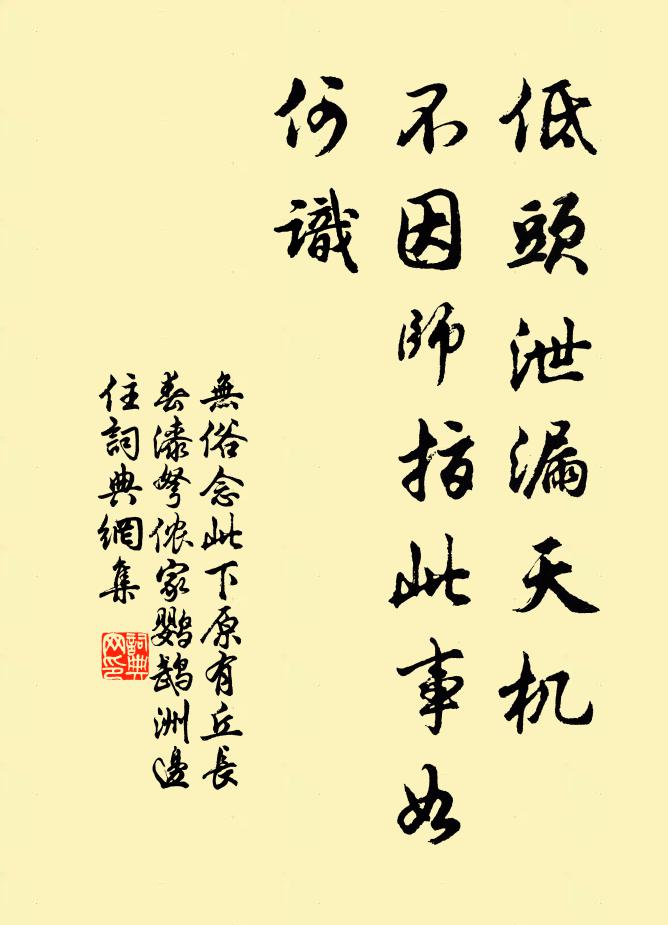 低頭泄漏天机
不因師指此事如
何識
無俗念此下原有丘長
春漆弩侬家鹦鹉洲邊
住詞典網集
詞典
网印